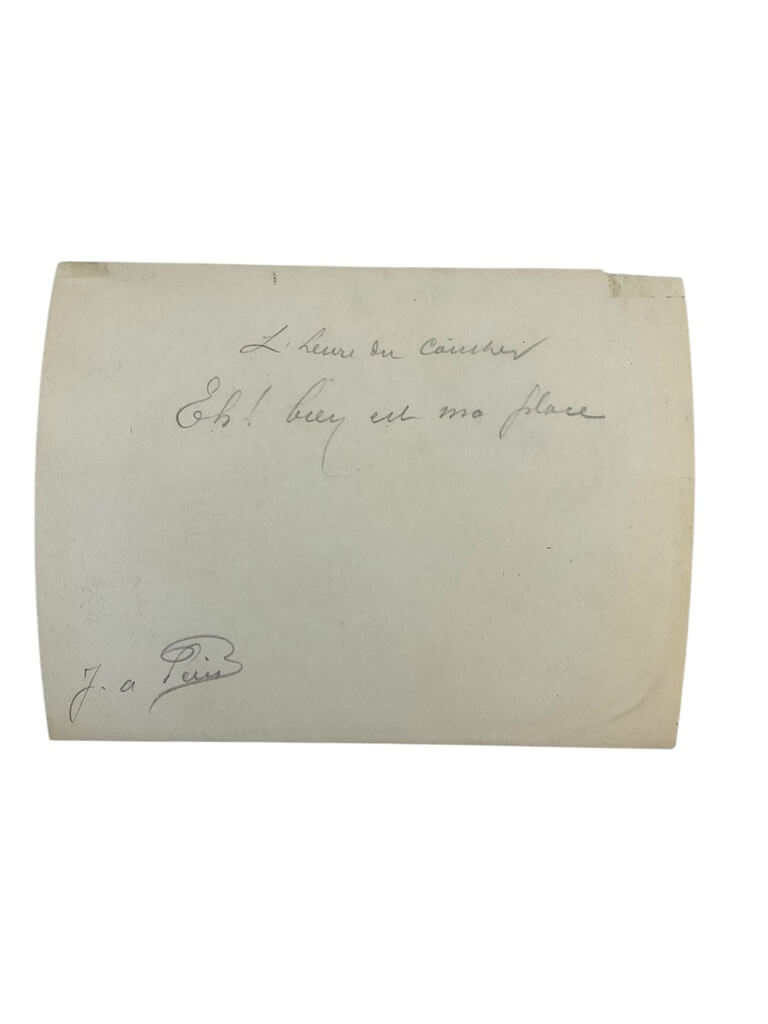 L'heure du coucher
Eh! bien et ma place
J. a